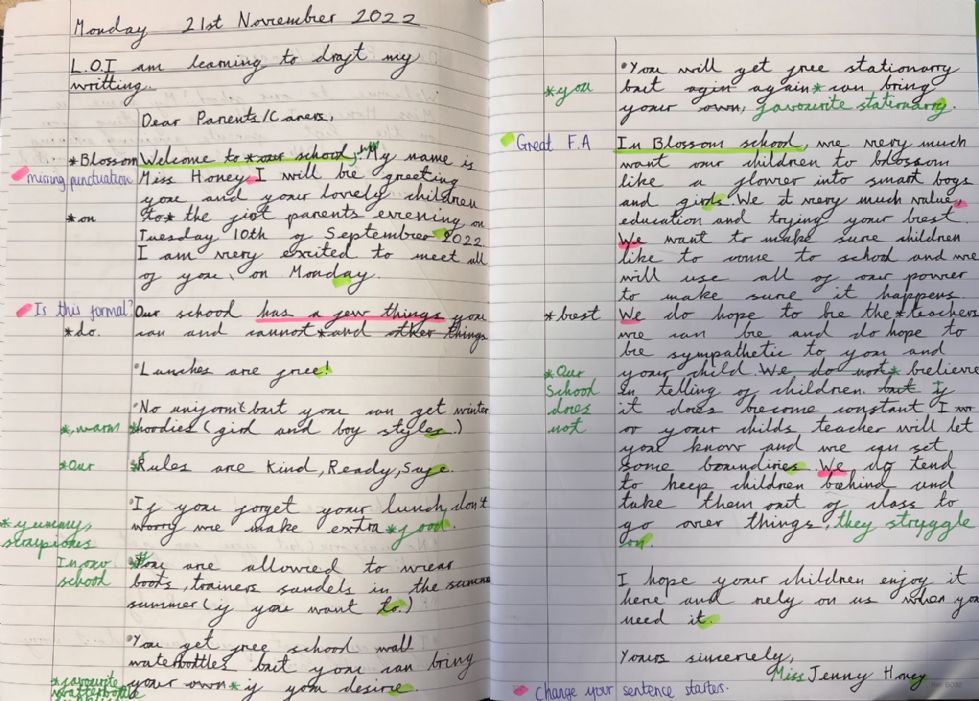 Monday 21st November 2022
L.O.I am learning to draft my
writting.
Dear Parents/Carers,
*Blossom Welcome to *our school, My name is
missing punctuation Miss Honey I will be greeting
you and your lovely children
*on to* the first parents evening on
Tuesday 10th of September 2022.
I am very excited to meet all
of you, on Monday.
Is this formal? Our school has a few things you
*do. can and cannot *and other things
•Lunches are free!
•No uniform but you can get winter
*warm *hoodies (girl and boy styles.)
*Our *Rules are Kind, Ready, Safe.
•If you forget your lunch don't
worry we make extra *food
*yummy,
scrumpious
In our *You are allowed to wear
school boots, trainers sandels in the
summer (if you want to.)
•You get free school wall
waterbottles but you can bring
*favourite your own * if you desire.
waterbottle
•You will get free stationarry
*you but again again* can bring
your own, favourite stationarry.
Great F.A In Blossom school, we very much
want our children to blossom
like a flower into smart boys
and girls. We it very much value,
education and trying your best.
We want to make sure children
like to come to school and we
will use all of our power
to make sure it happens.
*best We do hope to be the *teachers
we can be and do hope to
be sympathetic to you and
*Our your child. We do not* believe
School in telling of children but if
does it does become constant I
not or your childs teacher will let
you know and we can set
some boundiries. We do tend
to keep children behind and
take them out of class to
go over things, they struggle
on.
I hope your children enjoy it
here and rely on us when you
need it.
Yours sincerely,
Miss Jenny Honey
Change your sentence starter.